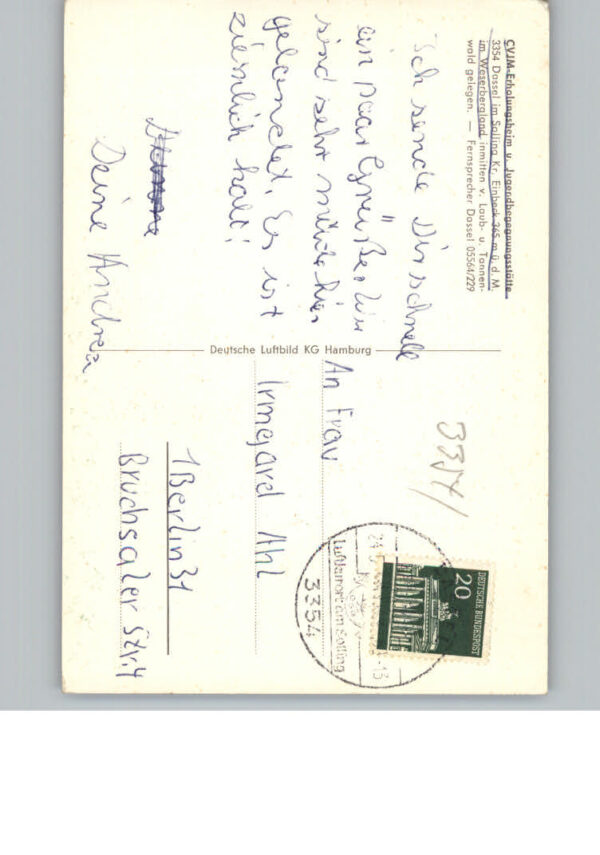 CVJM-Erholungsheim u. Jugendbegegnungsstätte
3354 Dassel im Solling Kr. Einbeck 365 m ü. d. M.
im Weserbergland inmitten v. Laub- u. Tannen-
wald gelegen. — Fernsprecher Dassel 05564/229
Ich sende Dir schnell
ein paar Grüße. Wir
sind sehr müde hier
gelandet. Es ist
ziemlich kalt!
Deine Andrea
Deutsche Luftbild KG Hamburg
3354/
DEUTSCHE BUNDESPOST
20
3354
Luftkurort am Solling
An Frau
Irmgard Ahl
1 Berlin 31
Bruchsaler Str. 4